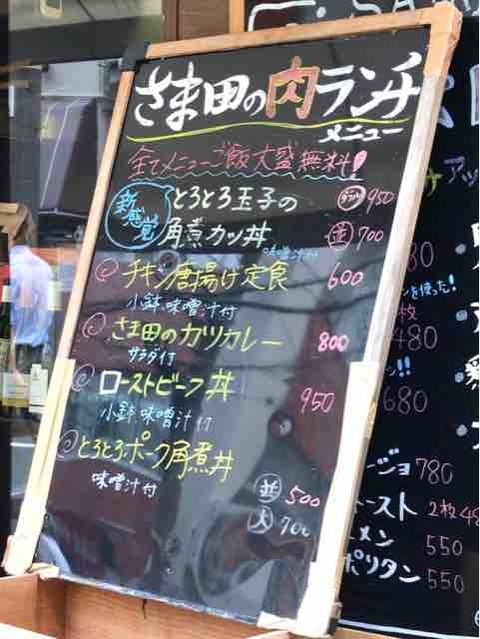 さま田の肉ランチ
メニュー
全てメニューご飯大盛無料!
新感覚
とろとろ玉子の
角煮カツ丼
ダブル 950
並 700
味噌汁付
チキン唐揚げ定食 600
小鉢.味噌汁付
さま田のカツカレー 800
サラダ付
ローストビーフ丼 950
小鉢.味噌汁付
とろとろポーク角煮丼
味噌汁付
並 500
大 700
を使った!
480
680
780
2枚48
550
ポリタン 550